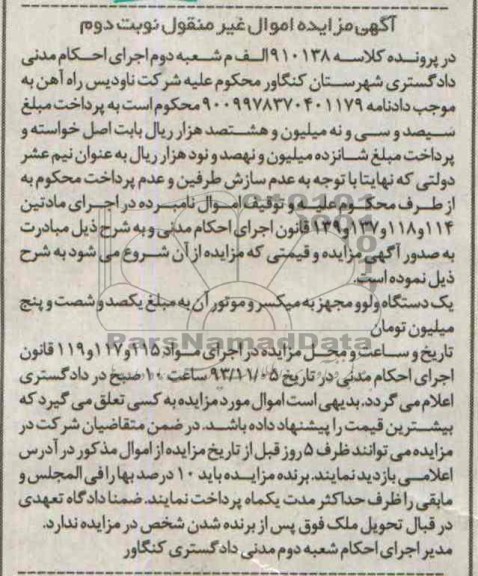 آگهی مزایده اموال غیر منقول نوبت دوم
در پرونده کلاسه ۹۱۰۱۳۸ الف م شعبه دوم اجرای احکام مدنی
دادگستری شهرستان کنگاور محکوم علیه شرکت ناودیس راه آهن به
موجب دادنامه ۹۰۰۹۹۷۸۳۷۰۴۰۱۱۷۹ محکوم است به پرداخت مبلغ
سیصد و سی و نه میلیون و هشتصد هزار ریال بابت اصل خواسته و
پرداخت مبلغ شانزده میلیون و نهصد و نود هزار ریال به عنوان نیم عشر
دولتی که نهایتا با توجه به عدم سازش طرفین و عدم پرداخت محکوم به
از طرف محکوم علیه و توقیف اموال نامبرده در اجرای مادتین
۱۱۴و۱۱۸و۱۳۷و۱۳۹ قانون اجرای احکام مدنی و به شرح ذیل مبادرت
به صدور آگهی مزایده و قیمتی که مزایده از آن شروع می شود به شرح
ذیل نموده است.
یک دستگاه ولوو مجهز به میکسر و موتور آن به مبلغ یکصد و شصت و پنج
میلیون تومان
ParsNamadData
تاریخ و ساعت و محل مزایده در اجرای مواد ۱۱۵و۱۱۷و۱۱۹ قانون
اجرای احکام مدنی در تاریخ ۹۳/۱۱/۰۵ ساعت ۱۰ صبح در دادگستری
اعلام می گردد. بدیهی است اموال مورد مزایده به کسی تعلق می گیرد که
بیشترین قیمت را پیشنهاد داده باشد. در ضمن متقاضیان شرکت در
مزایده می توانند ظرف ۵ روز قبل از تاریخ مزایده از اموال مذکور در آدرس
اعلامی بازدید نمایند. برنده مزایده باید ۱۰ درصد بها را فی المجلس و
مابقی را ظرف حداکثر مدت یکماه پرداخت نمایند. ضمنا دادگاه تعهدی
در قبال تحویل ملک فوق پس از برنده شدن شخص در مزایده ندارد.
مدیر اجرای احکام شعبه دوم مدنی دادگستری کنگاور